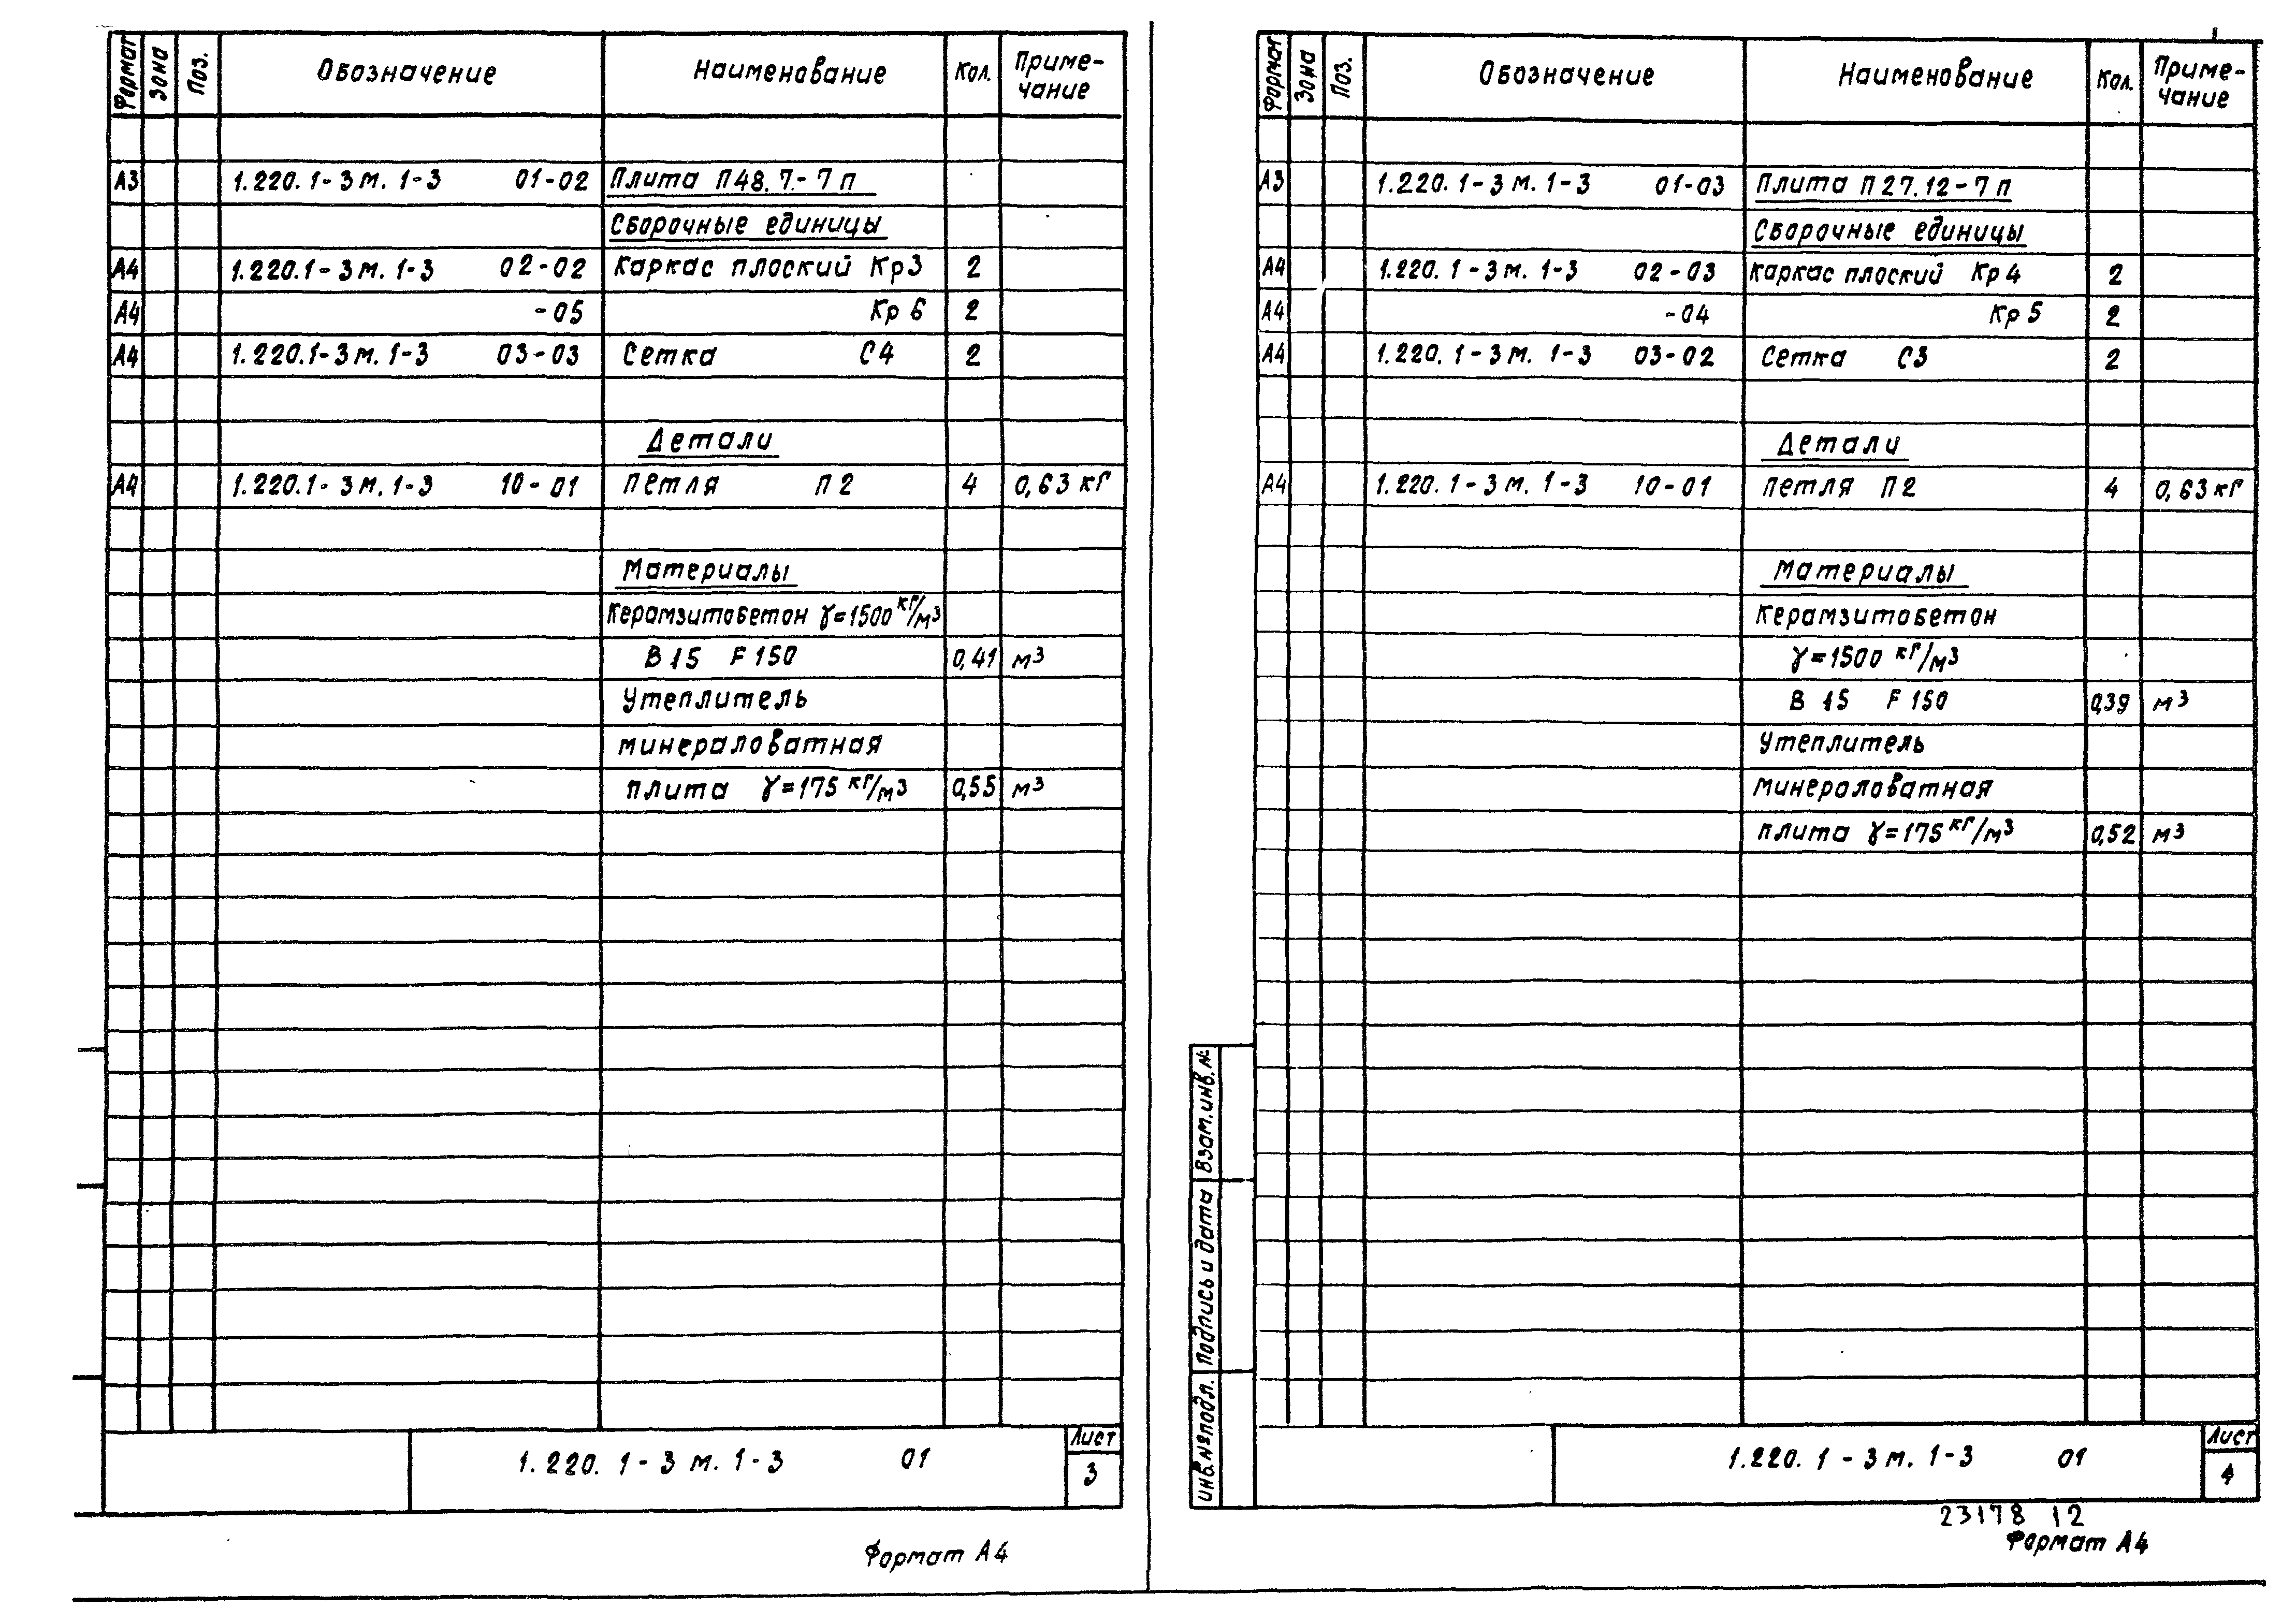 Формат Зона Поз. Обозначение Наименование Кол. Приме-
чание
А3 1.220.1-3м.1-3 01-02 Плита П48.7-7п
Сборочные единицы
А4 1.220.1-3м.1-3 02-02 Каркас плоский Кр3 2
А4 -05 Кр6 2
А4 1.220.1-3м.1-3 03-03 Сетка С4 2
Детали
А4 1.220.1-3м.1-3 10-01 Петля П2 4 0,63кг
Материалы
Керамзитобетон γ=1500 кг/м3
В15 F150 0,41 м3
Утеплитель
минераловатная
плита γ=175 кг/м3 0,55 м3
1.220.1-3м.1-3 01
Лист
3
Формат А4
Формат Зона Поз. Обозначение Наименование Кол. Приме-
чание
А3 1.220.1-3м.1-3 01-03 Плита П27.12-7п
Сборочные единицы
А4 1.220.1-3м.1-3 02-03 Каркас плоский Кр4 2
А4 -04 Кр5 2
А4 1.220.1-3м.1-3 03-02 Сетка С3 2
Детали
А4 1.220.1-3м.1-3 10-01 Петля П2 4 0,63кг
Материалы
Керамзитобетон
γ=1500 кг/м3
В15 F150 0,39 м3
Утеплитель
минераловатная
плита γ=175 кг/м3 0,52 м3
Взам.инв.№
Подпись и дата
Инв.№подл.
1.220.1-3м.1-3 01
Лист
4
23178 12
Формат А4